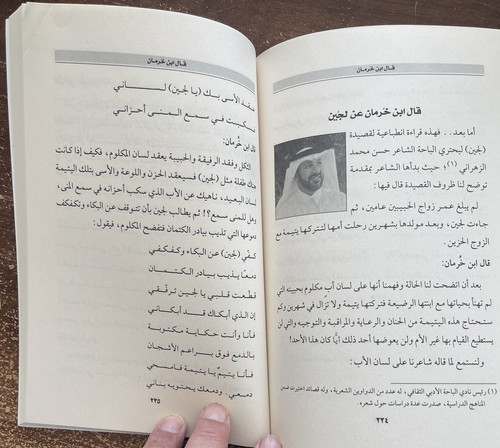 قال ابن خرمان
قال ابن خرمان عن لجين
أما بعد.. فهذه قراءة انطباعية لقصيدة
(لجين) لبحتري الباحة الشاعر حسن محمد
الزهراني (١)؛ حيث بدأها الشاعر بمقدمة
توضح لنا ظروف القصيدة قال فيها:
لم يبلغ عمر زواج الحبيبين عامين، ثم
جاءت لجين، وبعد مولدها بشهرين رحلت أمها لتتركها يتيمة مع
الزوج الحزين.
قال ابن خرمان:
بعد أن اتضحت لنا الحالة وفهمنا أنها على لسان أب مكلوم بحبيبته التي
لم تهنأ بحياتها مع ابنتها الرضيعة فتركتها يتيمة ولا تزال في شهرين وكم
ستحتاج هذه اليتيمة من الحنان والرعاية والمراقبة والتوجيه والتي لن
يستطيع القيام بها غير الأم ولن يعوضها أحد ذلك أيًا كان هذا الأحد!
ولنستمع لما قاله شاعرنا على لسان الأب:
(١) رئيس نادي الباحة الأدبي الثقافي، له عدد من الدواوين الشعرية، وله قصائد اعتبرت ضمن
المناهج الدراسية، صدرت عدة دراسات حول شعره.
٢٢٤
قال ابن خرمان
عقد الأسى بك (يا لجين) لساني
فبكيت في سمع المنى أحزاني
قال ابن خرمان:
الثكل وفقد الرفيقة والحبيبة يعقد لسان المكلوم، فكيف إذا كانت
هناك طفلة مثل (لجين) فسيعقد الحزن واللوعة والأسى بتلك اليتيمة
لسان البعيد، ناهيك عن الأب الذي سكب أحزانه في سمع المنى،
وهل للمنى سمع؟! ثم يطالب لجين بأن تتوقف عن البكاء وتكفكف
دموعها التي تذيب بيادر الكتمان فتفضح المكلوم، فيقول:
كفّي (لجين) عن البكاء وكفكفي
دمعًا يذيب بيادر الكتمان
قطعت قلبي يا لجين ترفقي
إن الذي أبكاك قد أبكاني
فأنا وأنت حكاية مكتوبة
بالدمع فوق براعم الأشجان
فأنا يتيمٌ يا يتيمة فامسحي
دمعي.. ودمعك يحتويه بناني
٢٢٥